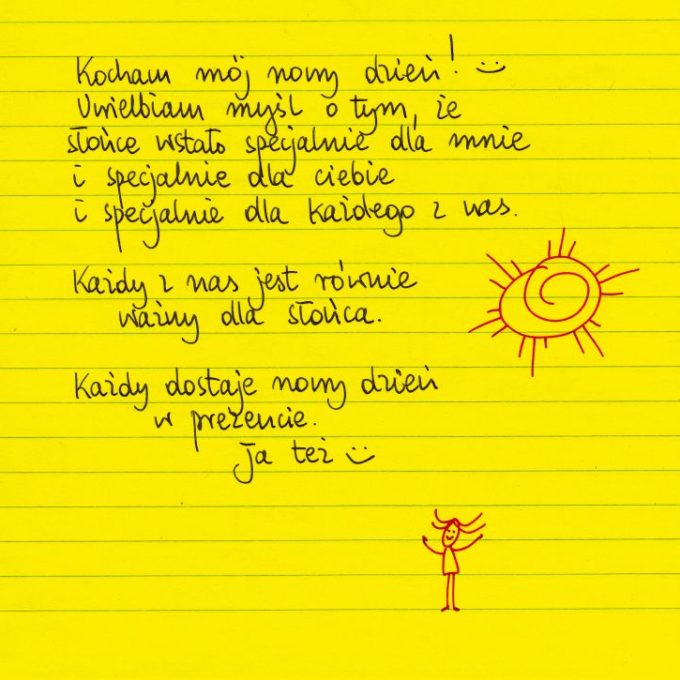 Kocham mój nowy dzień! :)
Uwielbiam myśl o tym, że
słońce wstało specjalnie dla mnie
i specjalnie dla ciebie
i specjalnie dla każdego z nas.
Każdy z nas jest równie
ważny dla słońca.
Każdy dostaje nowy dzień
w prezencie.
Ja też :)